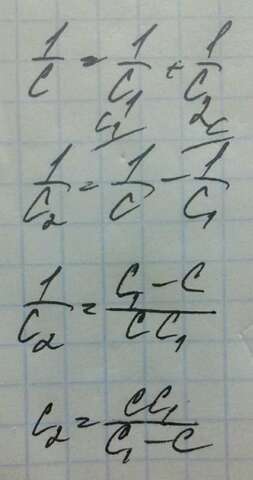 1/C = 1/C₁ + 1/C₂
1/C₂ = 1/C - 1/C₁
1/C₂ = (C₁ - C)/(C C₁)
C₂ = (C C₁)/(C₁ - C)